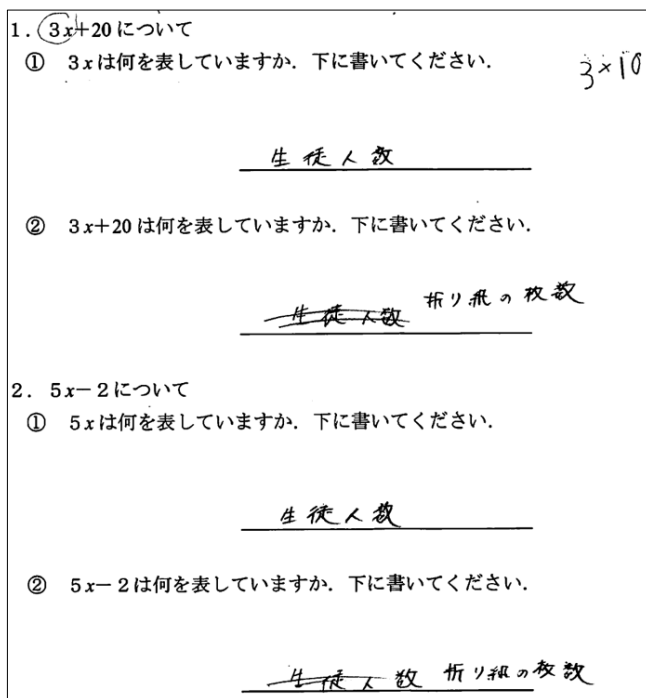 1. 3x+20 について
① 3xは何を表していますか．下に書いてください．
3×10
生徒人数
② 3x+20 は何を表していますか．下に書いてください．
生徒人数 折り紙の枚数
2. 5x-2 について
① 5xは何を表していますか．下に書いてください．
生徒人数
② 5x-2は何を表していますか．下に書いてください．
生徒人数 折り紙の枚数